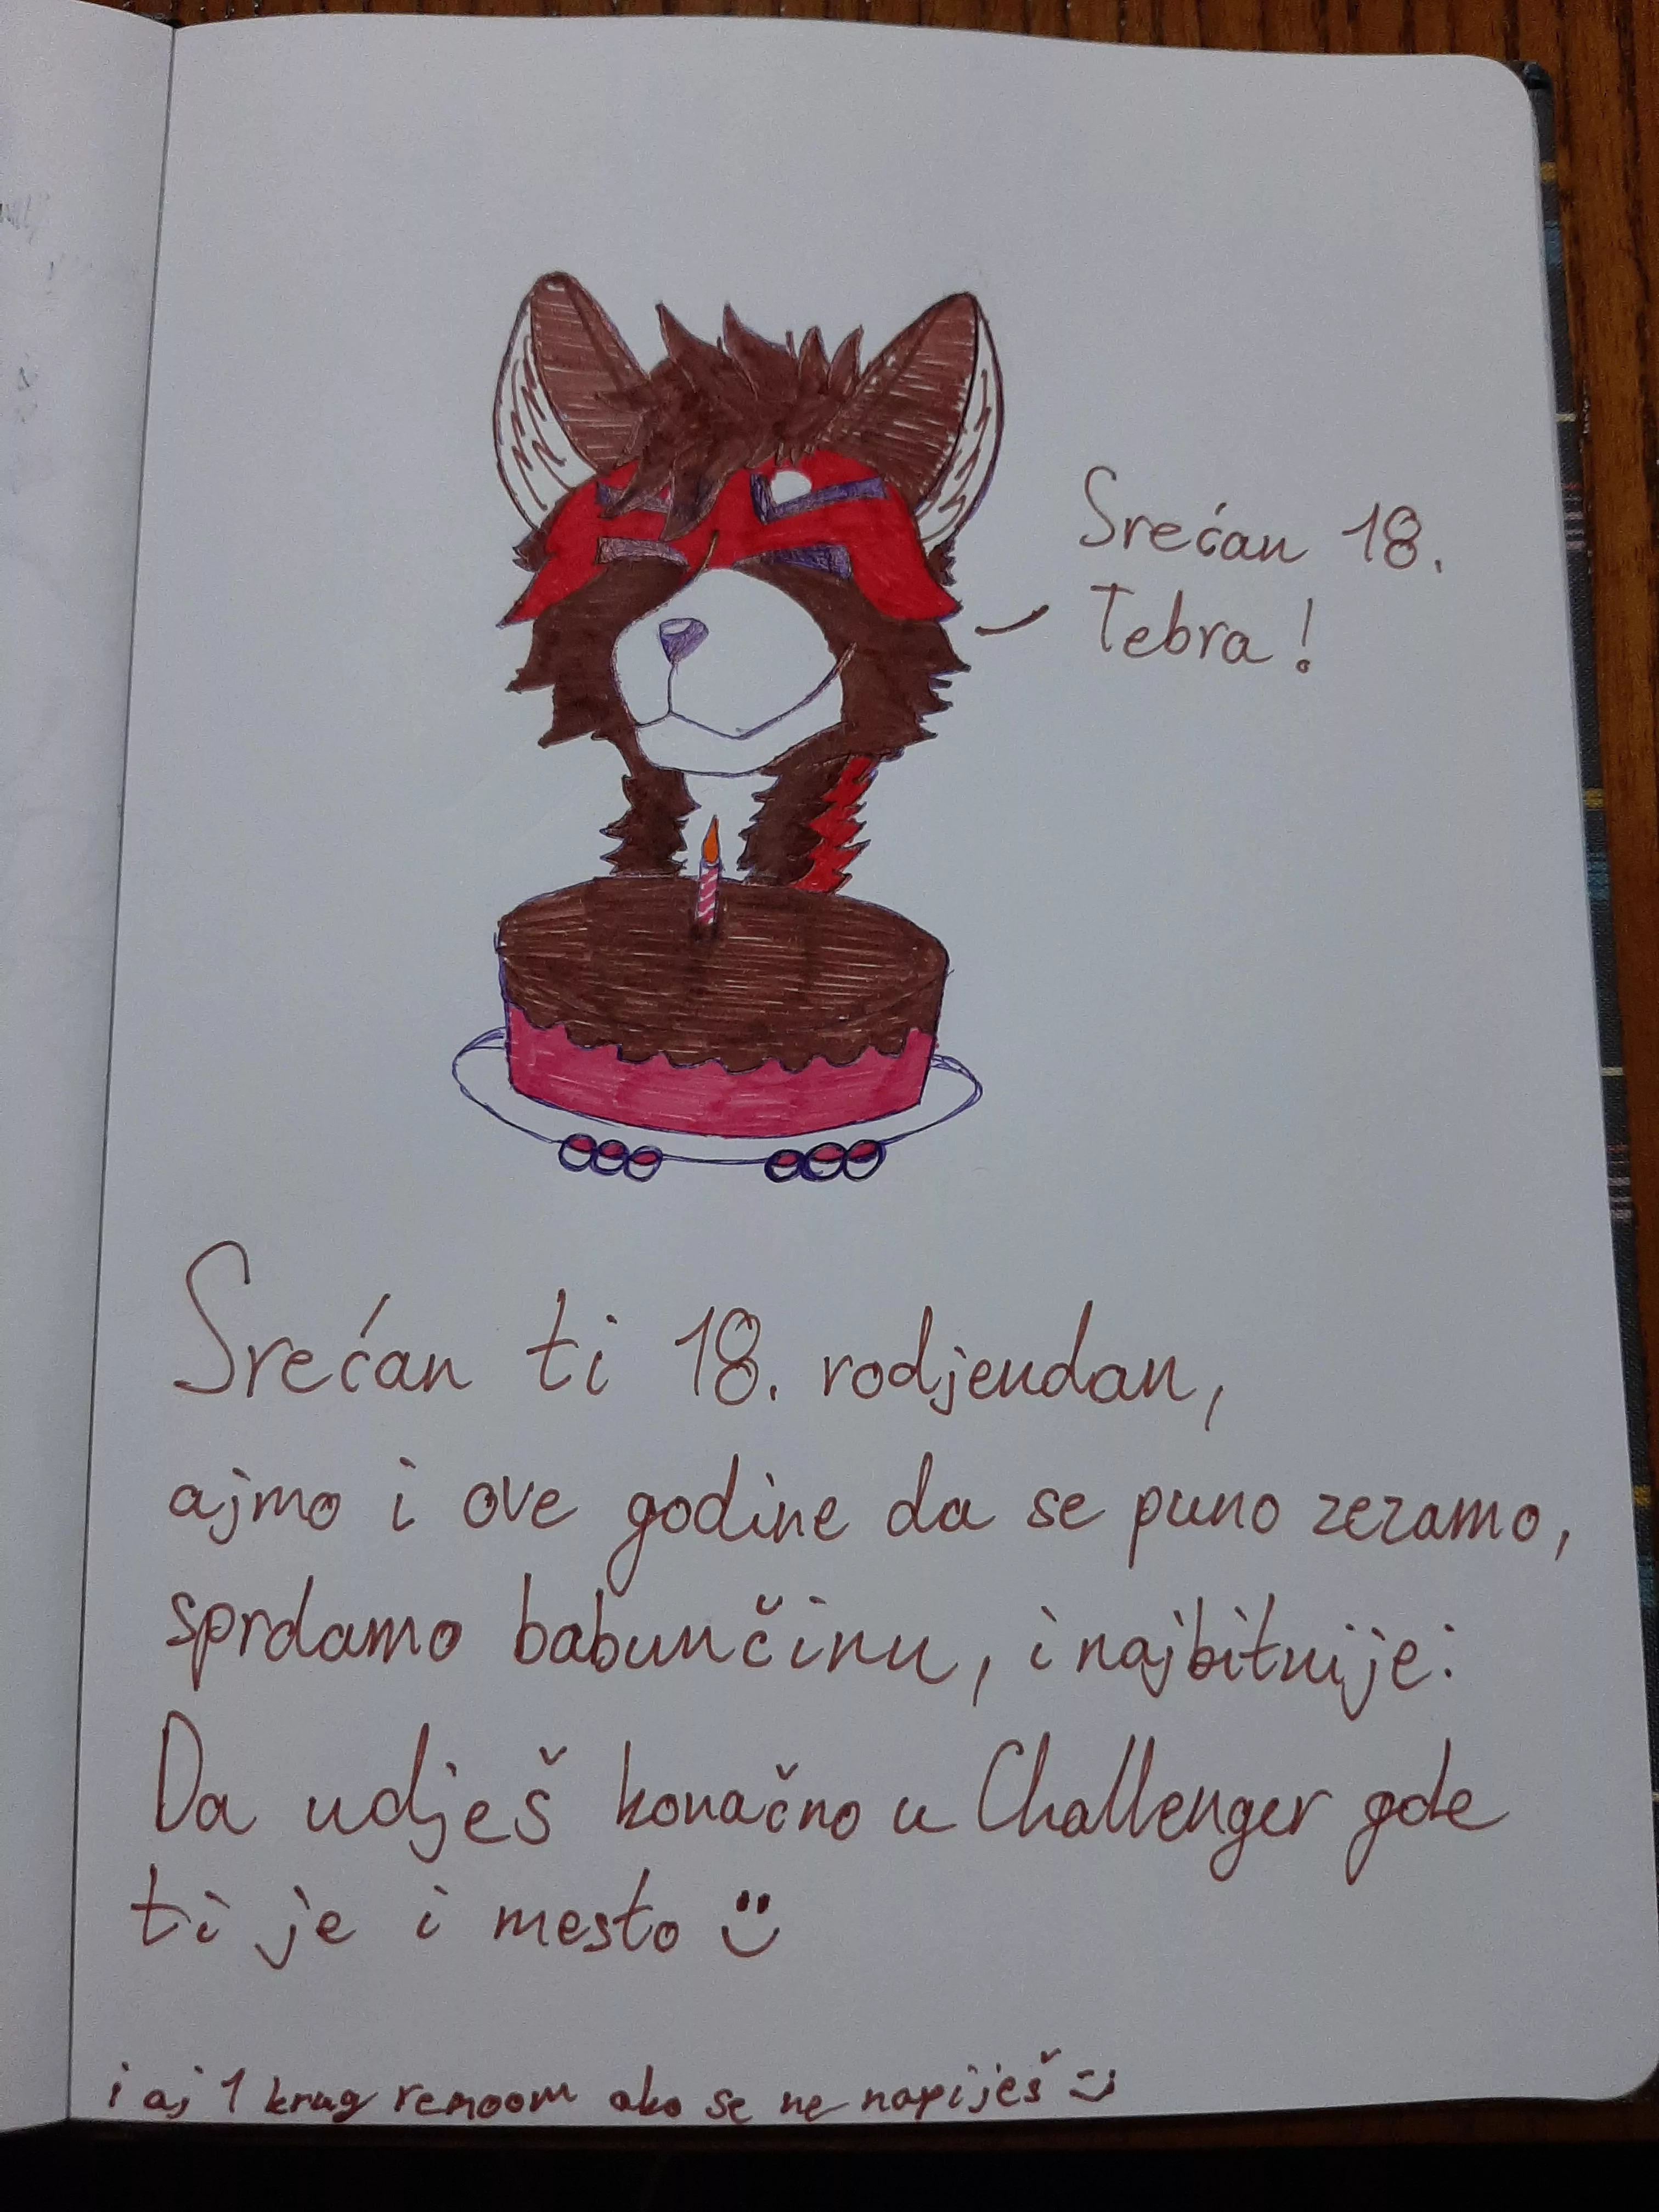 Srećan 18.
Tebra!
Srećan ti 18. rodjendan,
ajmo i ove godine da se puno zezamo,
sprdamo babunčinu, i najbitnije:
Da udješ konačno u Challenger gde
ti je i mesto
i aj 1 krug ako se ne napiješ